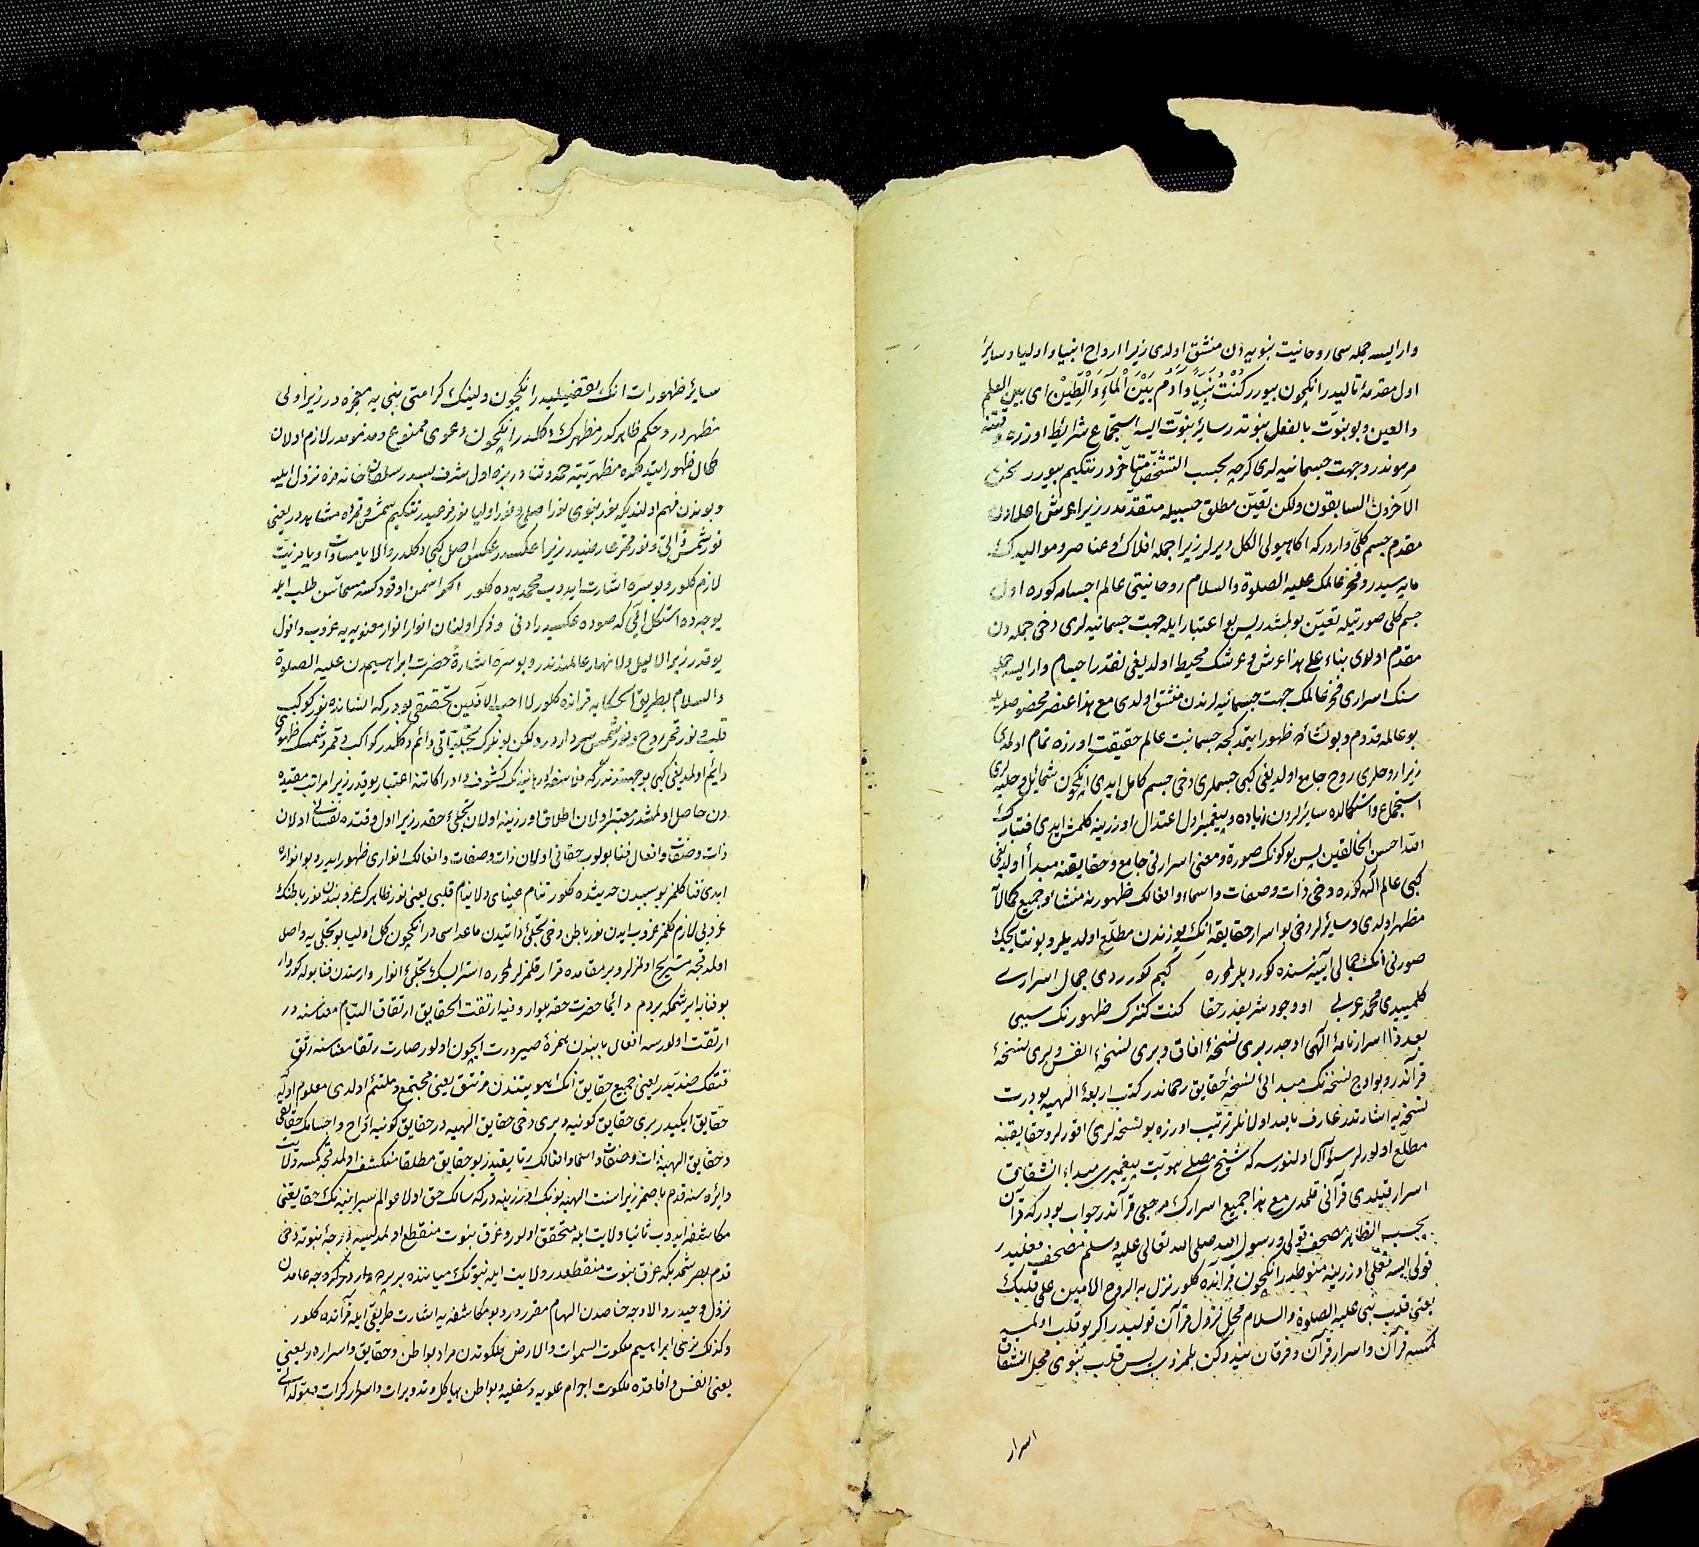 وار ایسه جمله سی روحانیت نبویه دن منشق اولدی زیرا ارواح انبیا و اولیا و سایر
اول مقدمۀ تالیدر انکچون بیورر کُنْتُ نَبِیًّا وَآدَمُ بَیْنَ الْمَآءِ وَالطِّیْنِ ای بین العلم
والعین و بو نبوّت بالفعل نبوتدر سایر نبوّت ایسه استجماع شرایط اوزره
مرموندر و جهت جسمانیه لری کرچه بحسب التشخّص متأخّر در نتکیم بیورر نحن
الآخرون السابقون ولکن تعیّن مطلق حسبیله متقدّمدر زیرا عرش اعلادن
مقدم جسم کلّی واردر که اکا هیولی الکل دیرلر زیرا جمله افلاک و عناصر و موالیدک
مایه سیدر و فخر عالمک علیه الصلوة والسلام روحانیتی عالم اجسامه کوره اول
جسم کلی صورتیله تعیّن بولمشدر پس بو اعتبار ایله جهت جسمانیه لری دخی جمله دن
مقدم اولدی بناء علی هذا عرش و عرشک محیط اولدیغی نقدر اجسام وار ایسه جمله
سنک اسراری فخر عالمک جهت جسمانیه لرندن منشق اولدی مع هذا عنصر مخصوصلریله
بو عالمه قدوم و بو نشأته ظهور ایتمدکجه جسمانیت عالم حقیقت اوزره تمام اولمدی
زیرا روحلری روح جامع اولدیغی کبی جسملری دخی جسم کامل ایدی انکچون شمائل و حلیه لری
استجماع و استکمالده سایرلردن زیاده و پیغمبر اول اعتدال اوزرینه کلمش ایدی فتبارک
الله احسن الخالقین پس بو کونک صورة و معنی اسرارنی جامع و حقایقنه مبدأ اولدیغی
کبی عالم الٓهه کوره دخی ذات و صفات و اسماء و افعالک ظهورنه منشاء و جمیع کمالآ
مظهر اولدی و سایرلر دخی بو اسرار حقایقه انک یوزندن مطلّع اولدیلر و بو نتایجک
صورتی انک جمالی آیینه سنده کوردیلر لمحرره کیم کورردی جمال اسراری
کلمییدی محمد عربی او وجود شریفدر حقا کنت کنزک ظهورنک سببی
بعد ذا اسرار نامۀ الٓهی اوچدر بری نسخۀ افاق و بری نسخۀ انفس و بری نسخۀ
قرآندر و بو اوچ نسخه نک مبدالی نسخۀ حقایق رحماندر کتب اربعۀ الٓهیه بو درت
نسخه یه اشارتدر عارف بالله اولانلر ترتیب اوزره بو نسخه لری اقورلر و حقایقنه
مطلّع اولورلر سؤال اولنورسه که شیخ مصلی هویّت پیغمبری مبداء انشقاق
اسرار قیلدی قرآنی قلمدی مع هذا جمیع اسرارک مرجعی قرآندر جواب بودر که قرآن
بحسب الظاهر مصحف قولی و رسول الله صلی الله تعالی علیه وسلم مصحف فعلیدر
قولی ایسه فعلی اوزرینه منوطدر انکچون قرآنده کلور نزل به الروح الامین علی قلبک
یعنی قلب نبی علیه الصلوة والسلام محل نزول قرآن قولیدر اکر بو قلب اولمسه
کمسه قرآن و اسرار قرآن و فرقان نیدوکن بلمزدی پس قلب نبوی محل انشقاق
اسرار
سایر ظهورات انک تفضیلیدر انکچون ولینک کرامتی نبی یه معجزه در زیرا ولی
مظهردر و حکم ظاهرکدر مظهرک دکلدر انکچون دعوی ممنوع و مذمومدر لازم اولان
کمال ظهور ایتدکده مظهریتیه حمد و ثنا در بزه اول شرف بسدر سلطان خانه مزه نزول ایلیه
و بوندن فهم اولندیکه نور نبوی نور اصلی و نور اولیا نور فرعیدر نتکیم شمس و قمرده مشاهددر یعنی
نور شمس ذاتی و نور قمر عارضیدر زیرا عکسدر عکس اصل کبی دکلدر والا یا مساوات و یا مزیت
لازم کلور و بو سره اشارت ایدوب محمدیه ده کلور
یوقدر زیرا لا لیل ولا نهار عالمندندر و بو سره اشارةً حضرت ابراهیمدن علیه الصلوة
والسلام بطریق الحکایه قرآنده کلور لا احب الآفلین تحقیقی بودر که انسانده نور کوکب
قلب و نور قمر روح و نور شمس سر واردر ولکن بونلرک تجلیّاتی دائم دکلدر کواکب و قمر و شمسک ظهوری
دن حاصل اولمشدر معتبر اولان اطلاق اوزرینه اولان تجلّی حقدر زیرا اول وقتده نفسانی اولان
ذات و صفات و افعال فنا بولوب حقانی اولان ذات و صفات و افعالک انواری ظهور ایدر و بو انواره
ابدی فنا کلمز بو سببدن حدیثده کلور تنام عینای ولا ینام قلبی یعنی نور ظاهرک غروبندن نور باطنک
غروبی لازم کلمز غروب ایدن نور باطن دخی تجلّی ذاتیدن ماعداسی در انکچون کمّل اولیا بو تجلی یه واصل
اولمدقجه مستریح اولمزلر و بر مقامده قرار قلمزلر لمحرره استرایسک تجلّی انوار وارسندن فنا بوله کور وار
بو فنا به ایرشمکه بر دم دایما حضرت حقه یلوار و فیه ارتقت الحقایق ارتقاق التیام معناسنه در
ارتقت اولورسه افعال بابندن همزۀ صیرورت ایچون اولور صارت رتقا معناسنه رتق
فتقک ضدیدر یعنی جمیع حقایق انک هویتندن مرتتق یعنی مجتمع و ملتئم اولدی معلوم اوله که
حقایق ایکیدر بری حقایق کونیه و بری دخی حقایق الٓهیه در حقایق کونیه ارواح و اجسامک حقایقی
و حقایق الٓهیه ذات و صفات و اسما و افعالک رتایقیدر بو حقایق مطلقا منکشف اولمدقجه کمسه ولایت
دایره سنه قدم باصمز زیرا سنت الٓهیه بونک اوزرینه در که سالک حق اولا عوالم سبر ایتینک حقایقنی
مکاشفه ایدوب ثانیا ولایت ایله متحقق اولور و عرق نبوت منقطع اولمدیسه درجۀ نبوته دخی
قدم بصرشمدیکه عرق نبوت منقطعدر ولایت ایله نبوتک میاننده بر پرده وار در که وجه عامدن
نزول وحیدر والا وجه خاصدن الهام مقرردر و بو مکاشفه یه اشارت طریقی ایله قرآنده کلور
وکذلک نری ابراهیم ملکوت السموات والارض ملکوتدن مراد بواطن و حقایق و اسراردر یعنی
یعنی انفس و افاقده ملکوت اجرام علویه و سفلیه و بواطن هیاکل و تدویرات و اسطار کرات